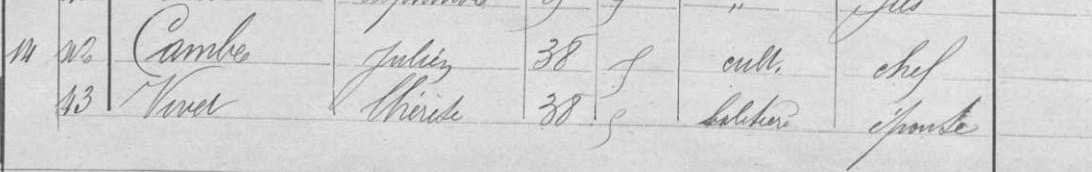 " fils
14 42 Cambe Julien 38 f cult. chef
43 Vivet Thérèse 38 f épouse